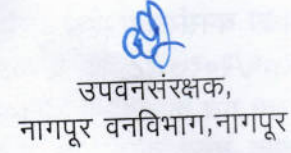 उपवनसंरक्षक,
नागपूर वनविभाग,नागपूर